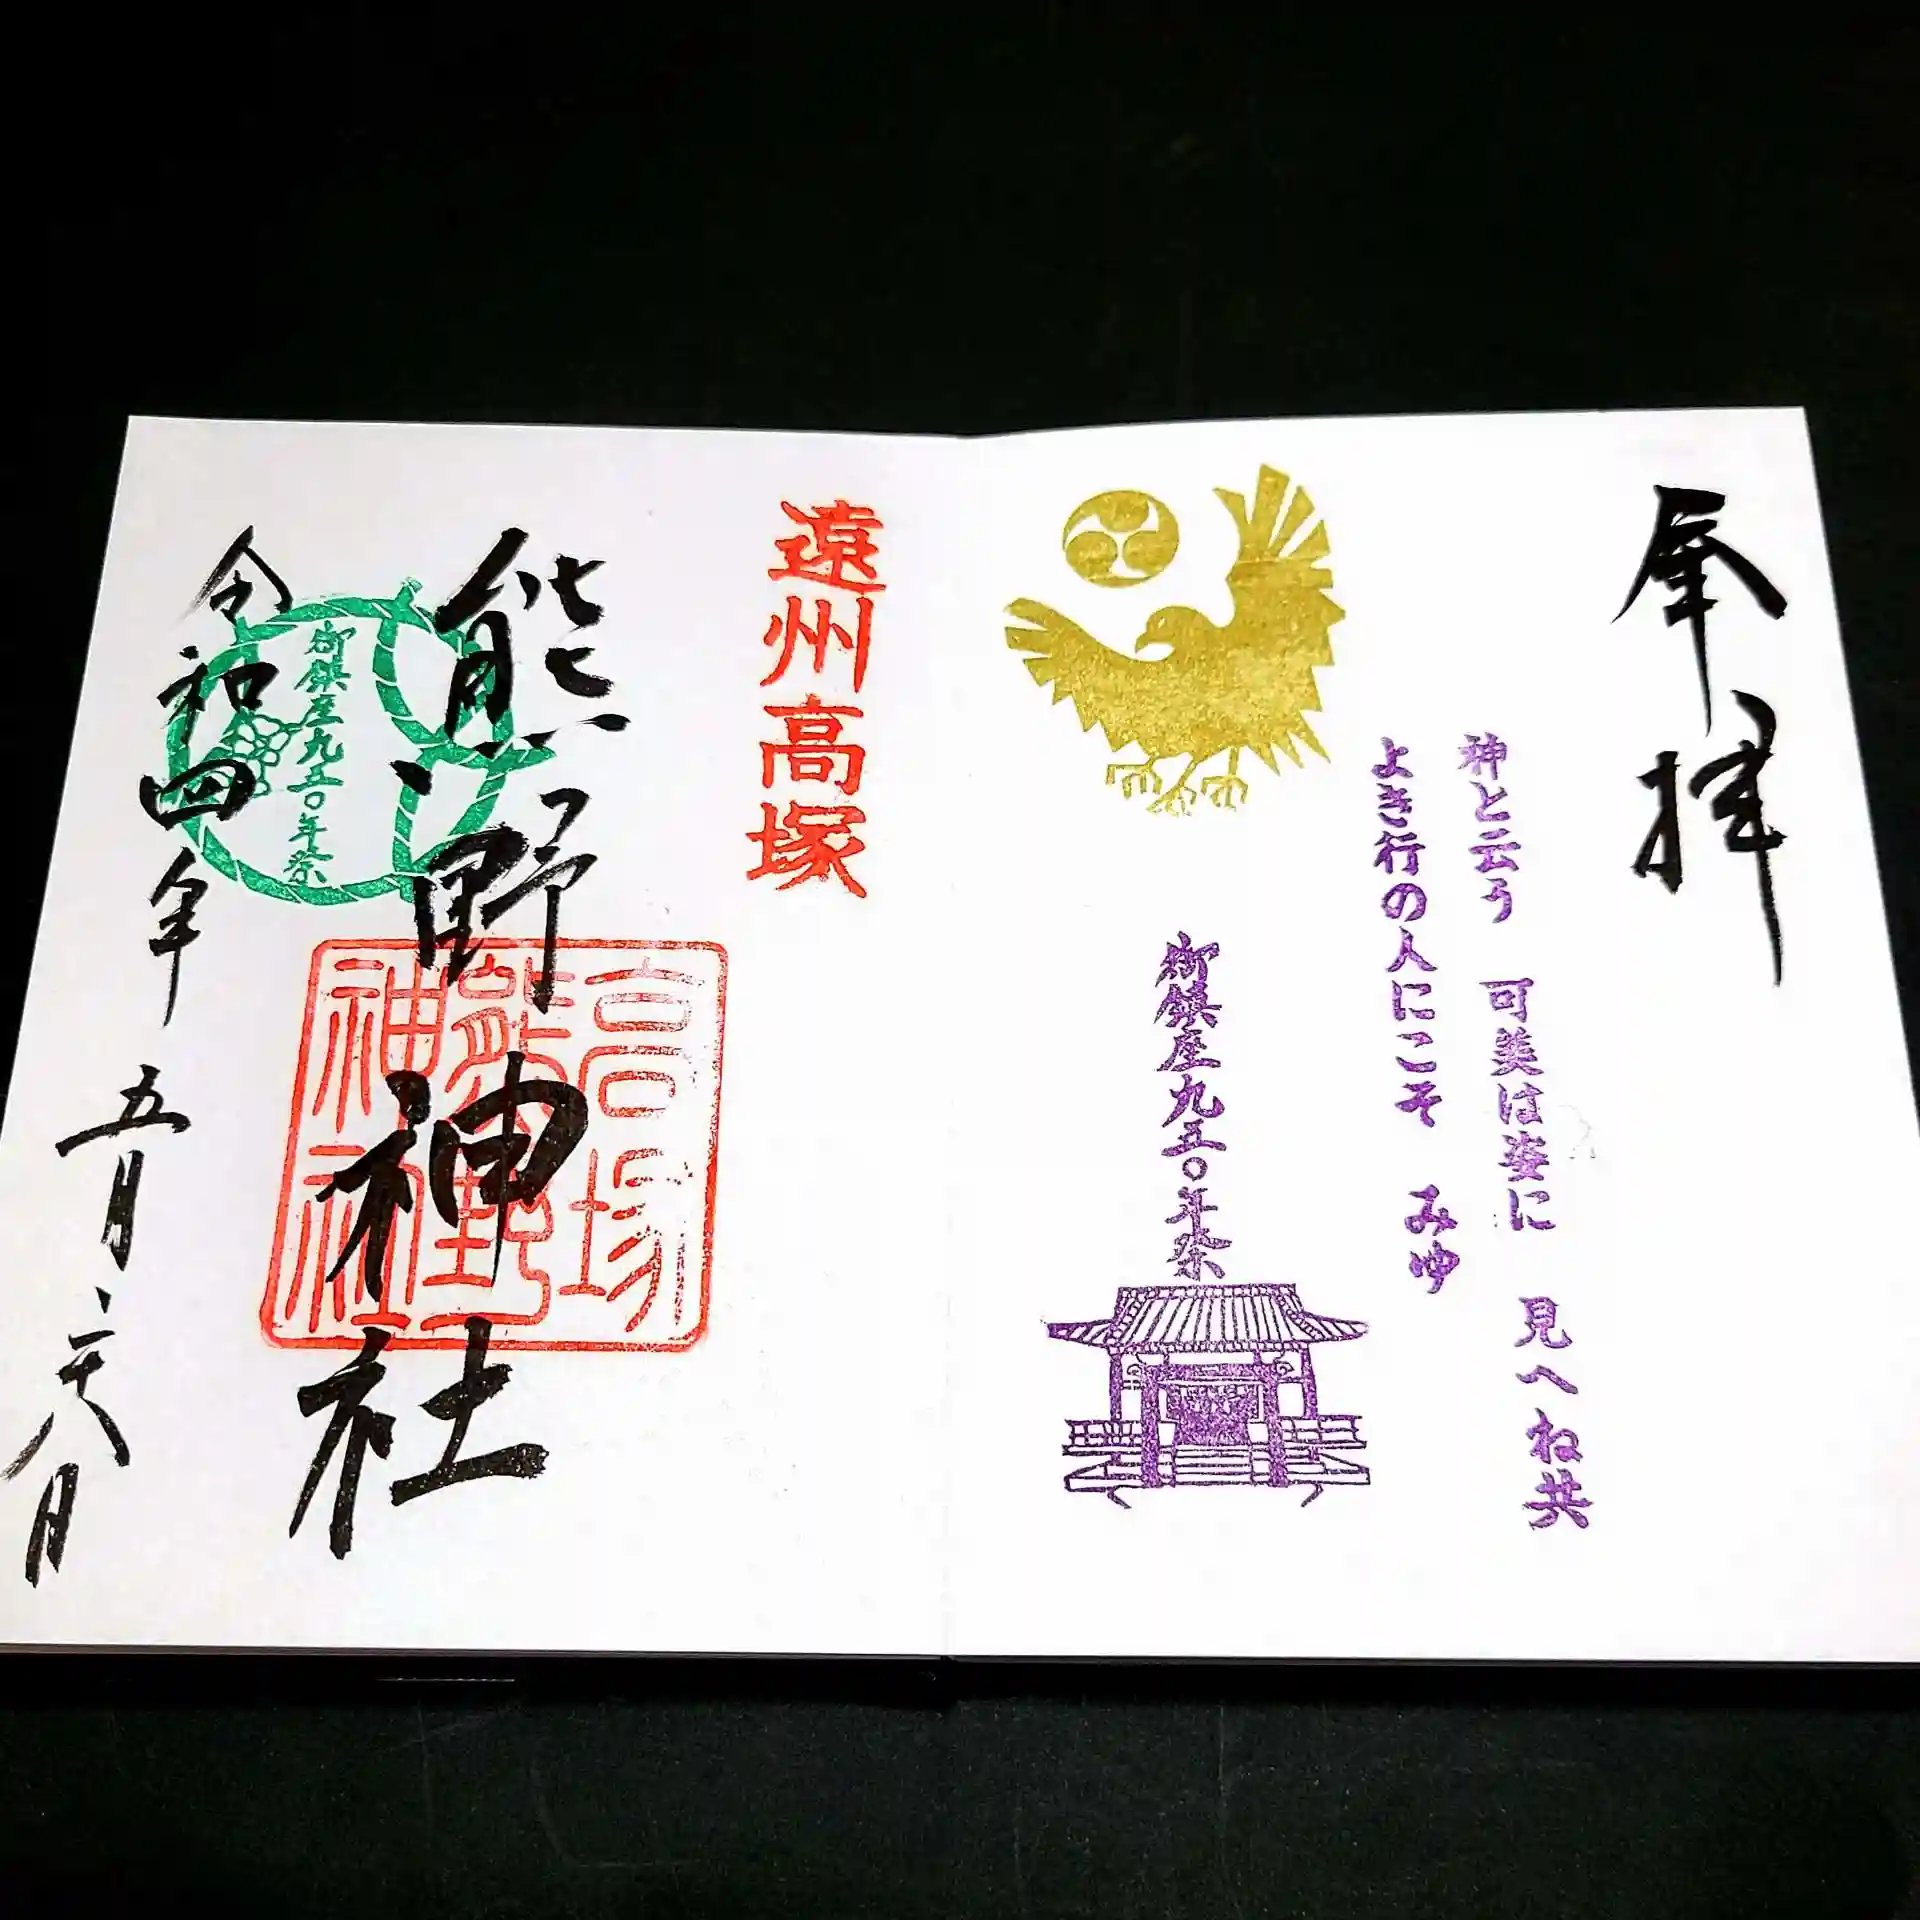 奉拝
神と云う 可美は姿に 見へね共
よき行の人にこそ みゆ
御鎮座九五〇年祭
遠州高塚
高塚
熊野
神社
熊野神社
御鎮座九五〇年祭
令和四年 五月二六日